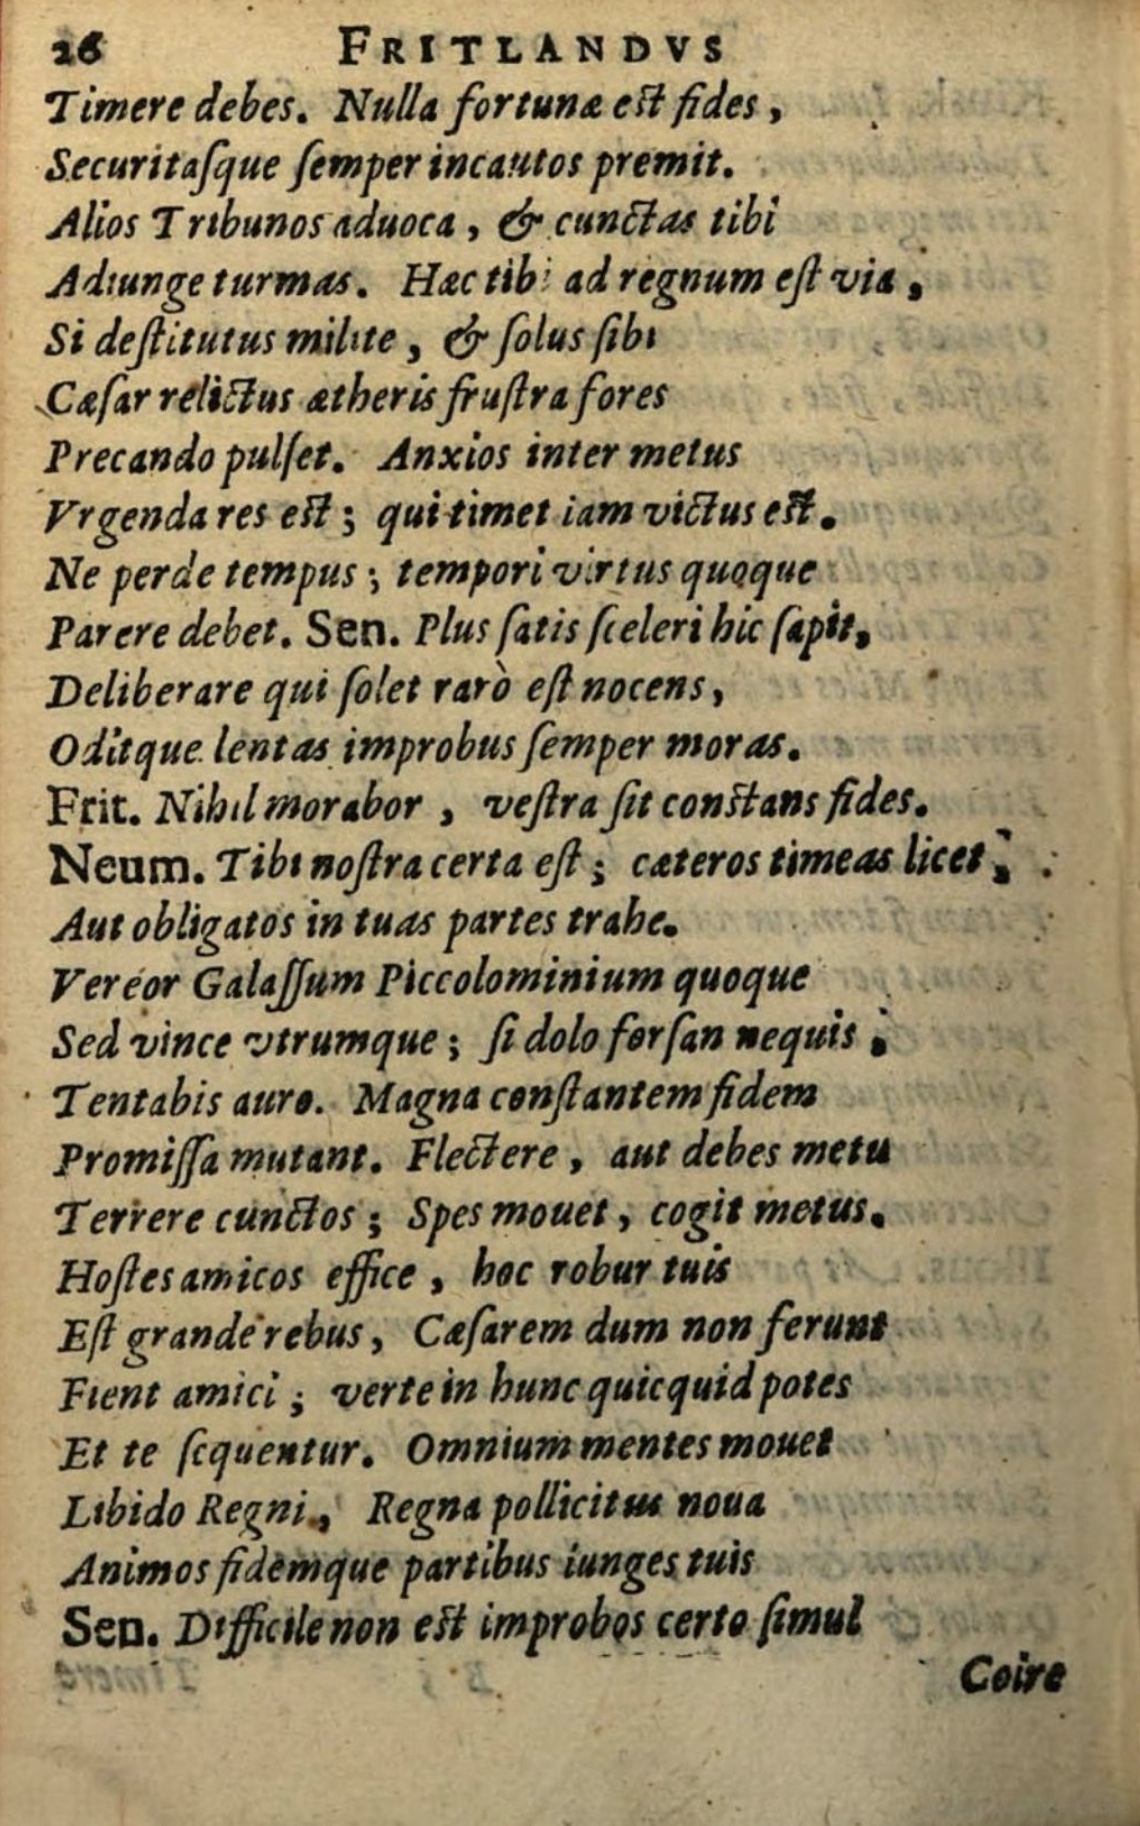 26 FRITLANDVS
Timere debes. Nulla fortunæ est fides,
Securitaſque ſemper incautos premit.
Alios Tribunos aduoca, & cunctas tibi
Adiunge turmas. Hæc tibi ad regnum eſt via,
Si deſtitutus milite, & ſolus ſibi
Cæſar relictus ætheris fruſtra fores
Precando pulſet. Anxios inter metus
Vrgenda res est; qui timet iam victus est.
Ne perde tempus; tempori virtus quoque
Parere debet. Sen. Plus ſatis ſceleri hic ſapit,
Deliberare qui ſolet rarò eſt nocens,
Oditque lentas improbus ſemper moras.
Frit. Nihil morabor, veſtra ſit constans fides.
Neum. Tibi noſtra certa eſt; cæteros timeas licet;
Aut obligatos in tuas partes trahe.
Vereor Galaſſum Piccolominium quoque
Sed vince vtrumque; ſi dolo forſan nequis;
Tentabis auro. Magna conſtantem fidem
Promiſſa mutant. Flectere, aut debes metu
Terrere cunctos; Spes mouet, cogit metus.
Hoſtes amicos effice, hoc robur tuis
Eſt grande rebus, Cæſarem dum non ferunt
Fient amici; verte in hunc quicquid potes
Et te ſequentur. Omnium mentes mouet
Libido Regni, Regna pollicitus noua
Animos fidemque partibus iunges tuis
Sen. Difficile non est improbos certo ſimul
Coire